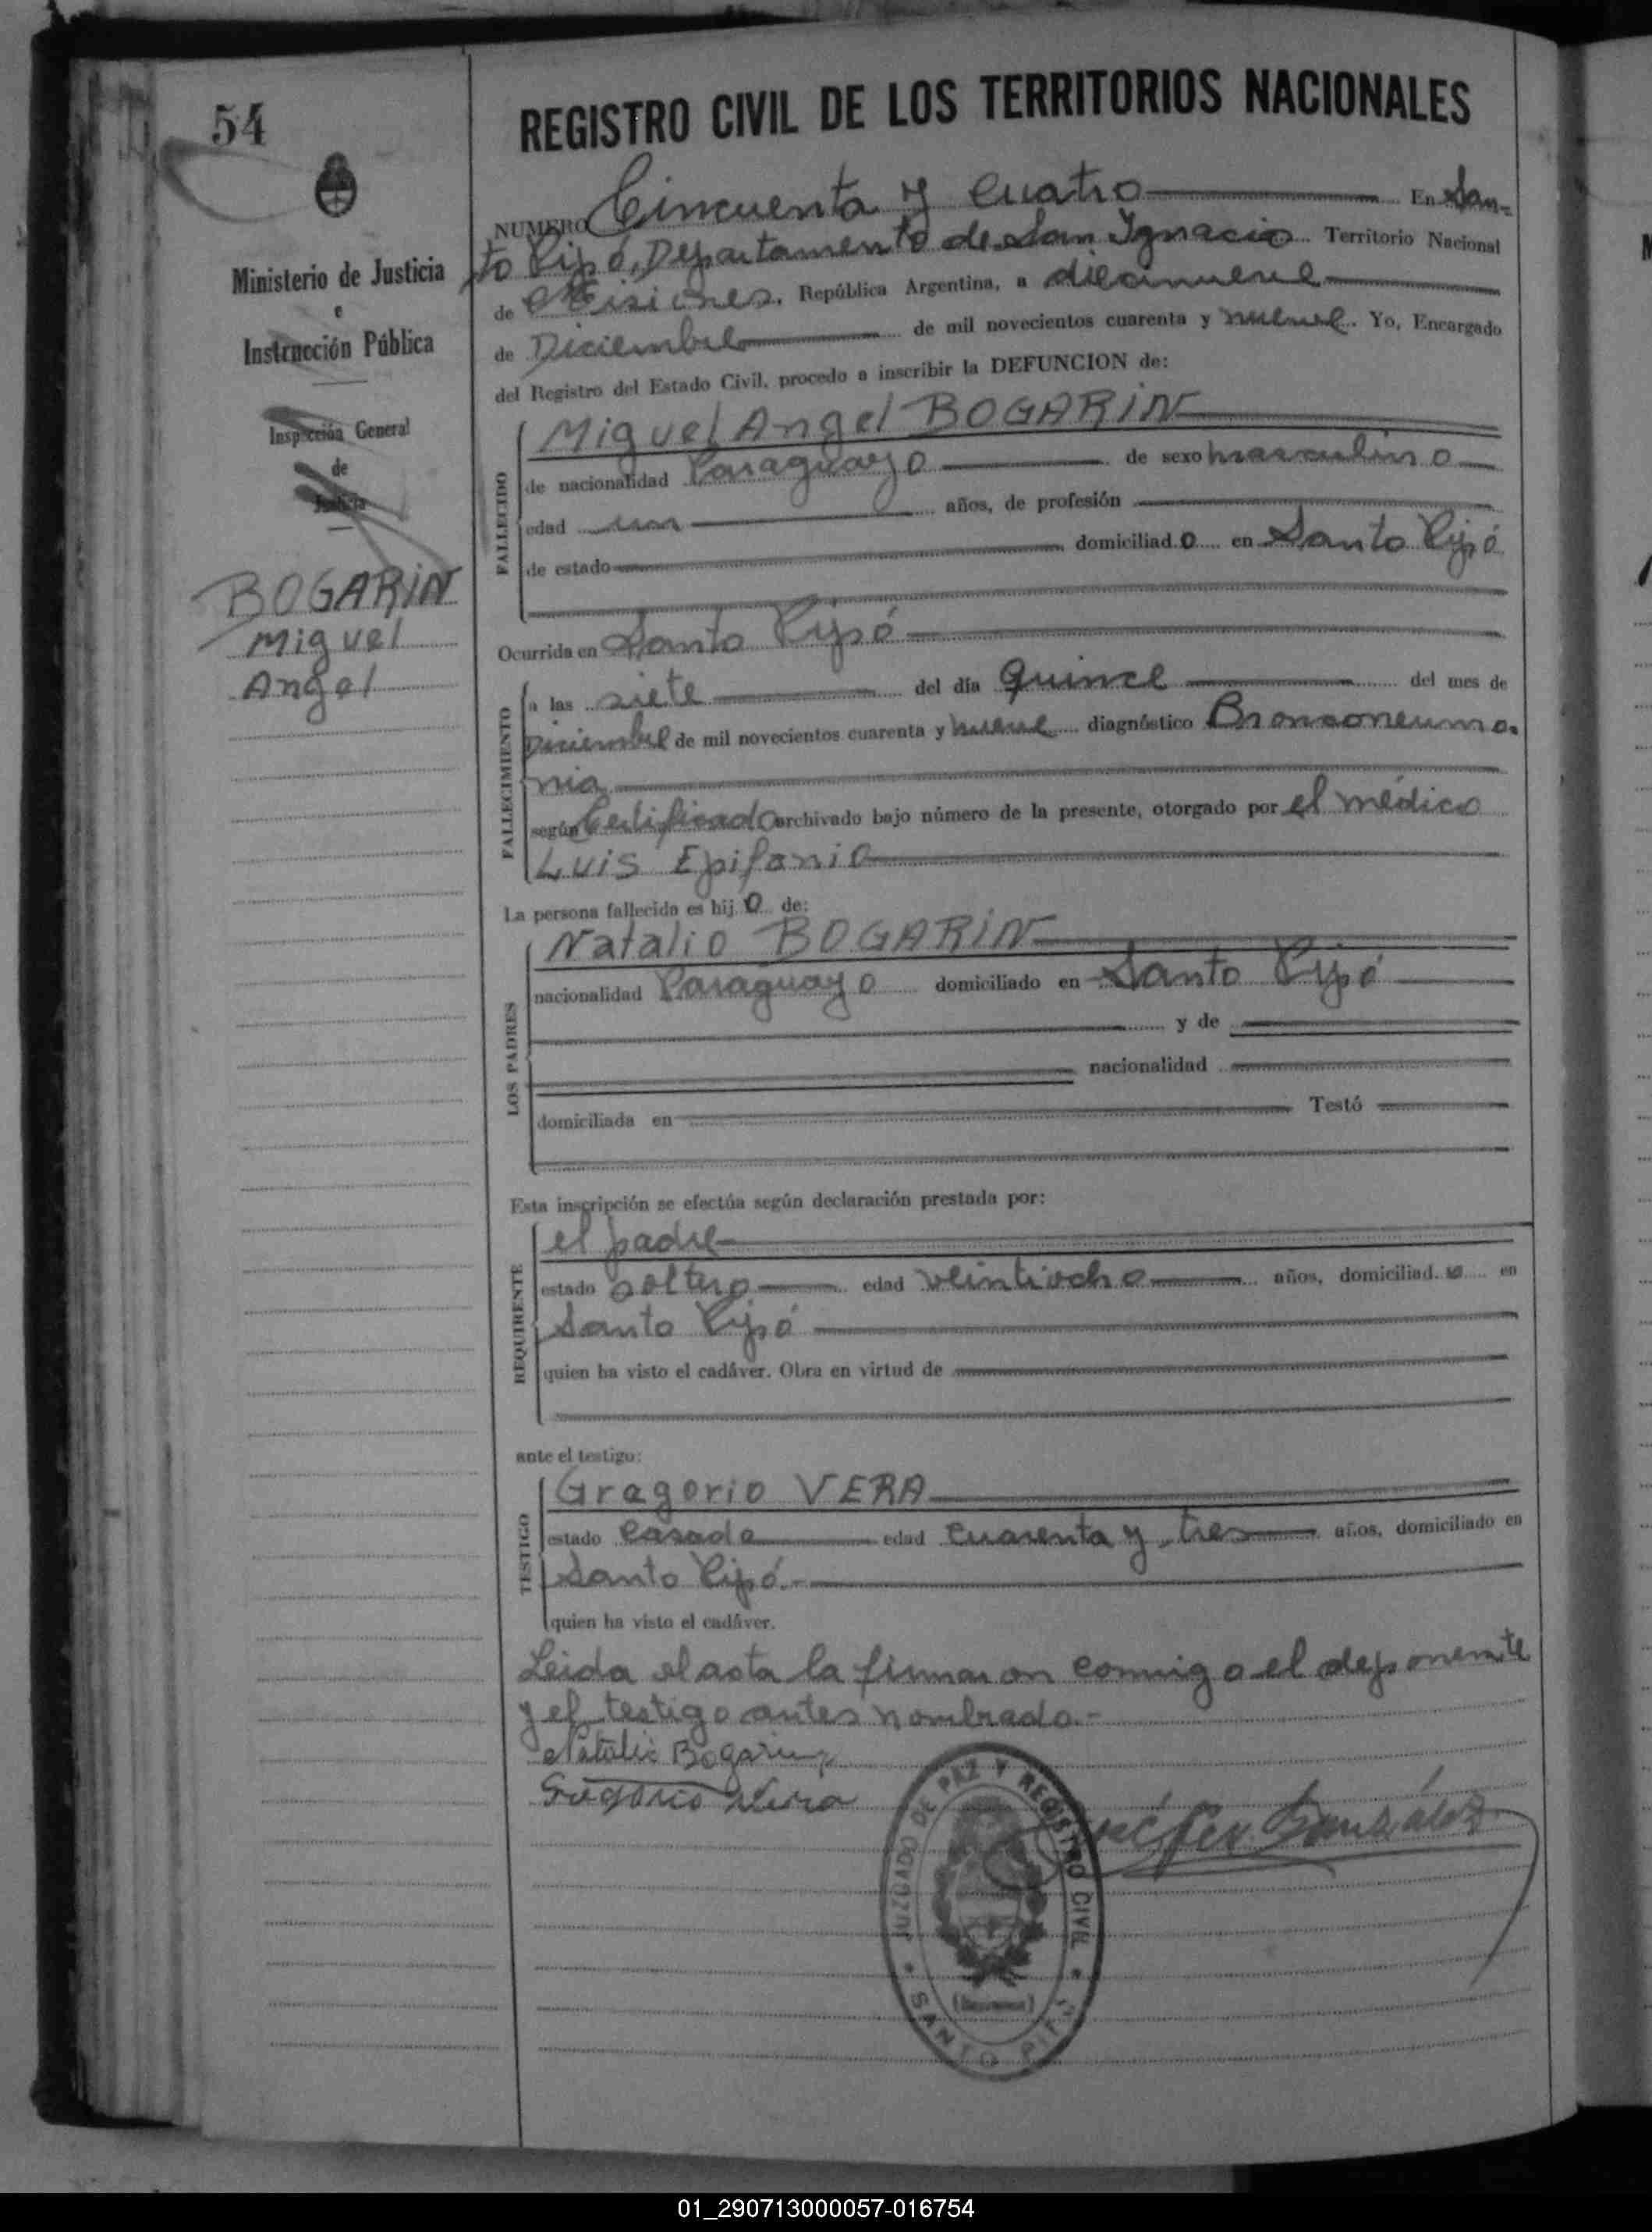 54
REGISTRO CIVIL DE LOS TERRITORIOS NACIONALES
NUMERO Cincuenta y cuatro En San-
to Pipó, Departamento de San Ignacio Territorio Nacional
de Misiones, República Argentina, a diecinueve
de Diciembre de mil novecientos cuarenta y nueve. Yo, Encargado
del Registro del Estado Civil, procedo a inscribir la DEFUNCION de:
Ministerio de Justicia
e
Instrucción Pública
Inspección General
de
Justicia
BOGARIN
Miguel
Angel
FALLECIDO
Miguel Angel BOGARIN
de nacionalidad Paraguayo de sexo masculino
edad un años, de profesión
de estado domiciliado en Santo Pipó
Ocurrida en Santo Pipó
FALLECIMIENTO
a las siete del día quince del mes de
Diciembre de mil novecientos cuarenta y nueve diagnóstico Bronconeumo-
nia
según Certificado archivado bajo número de la presente, otorgado por el médico
Luis Epifanio
La persona fallecida es hijo de:
LOS PADRES
Natalio BOGARIN
nacionalidad Paraguayo domiciliado en Santo Pipó
y de
nacionalidad
domiciliada en Testó
Esta inscripción se efectúa según declaración prestada por:
REQUIRENTE
el padre
estado soltero edad veintiocho años, domiciliado en
Santo Pipó
quien ha visto el cadáver. Obra en virtud de
ante el testigo:
TESTIGO
Gregorio VERA
estado casado edad cuarenta y tres años, domiciliado en
Santo Pipó.-
quien ha visto el cadáver.
Leida el acta la firmaron conmigo el deponente
y el testigo antes nombrado.-
Natalio Bogarin
Gregorio Vera
González
JUZGADO DE PAZ Y REGISTRO CIVIL
SANTO PIPÓ
01_290713000057-016754